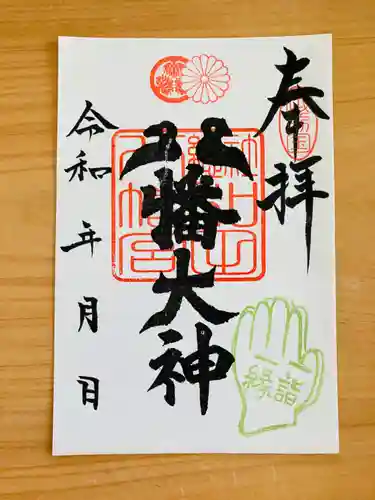 奉拝
八幡大神
令和 年 月 日
縁詣